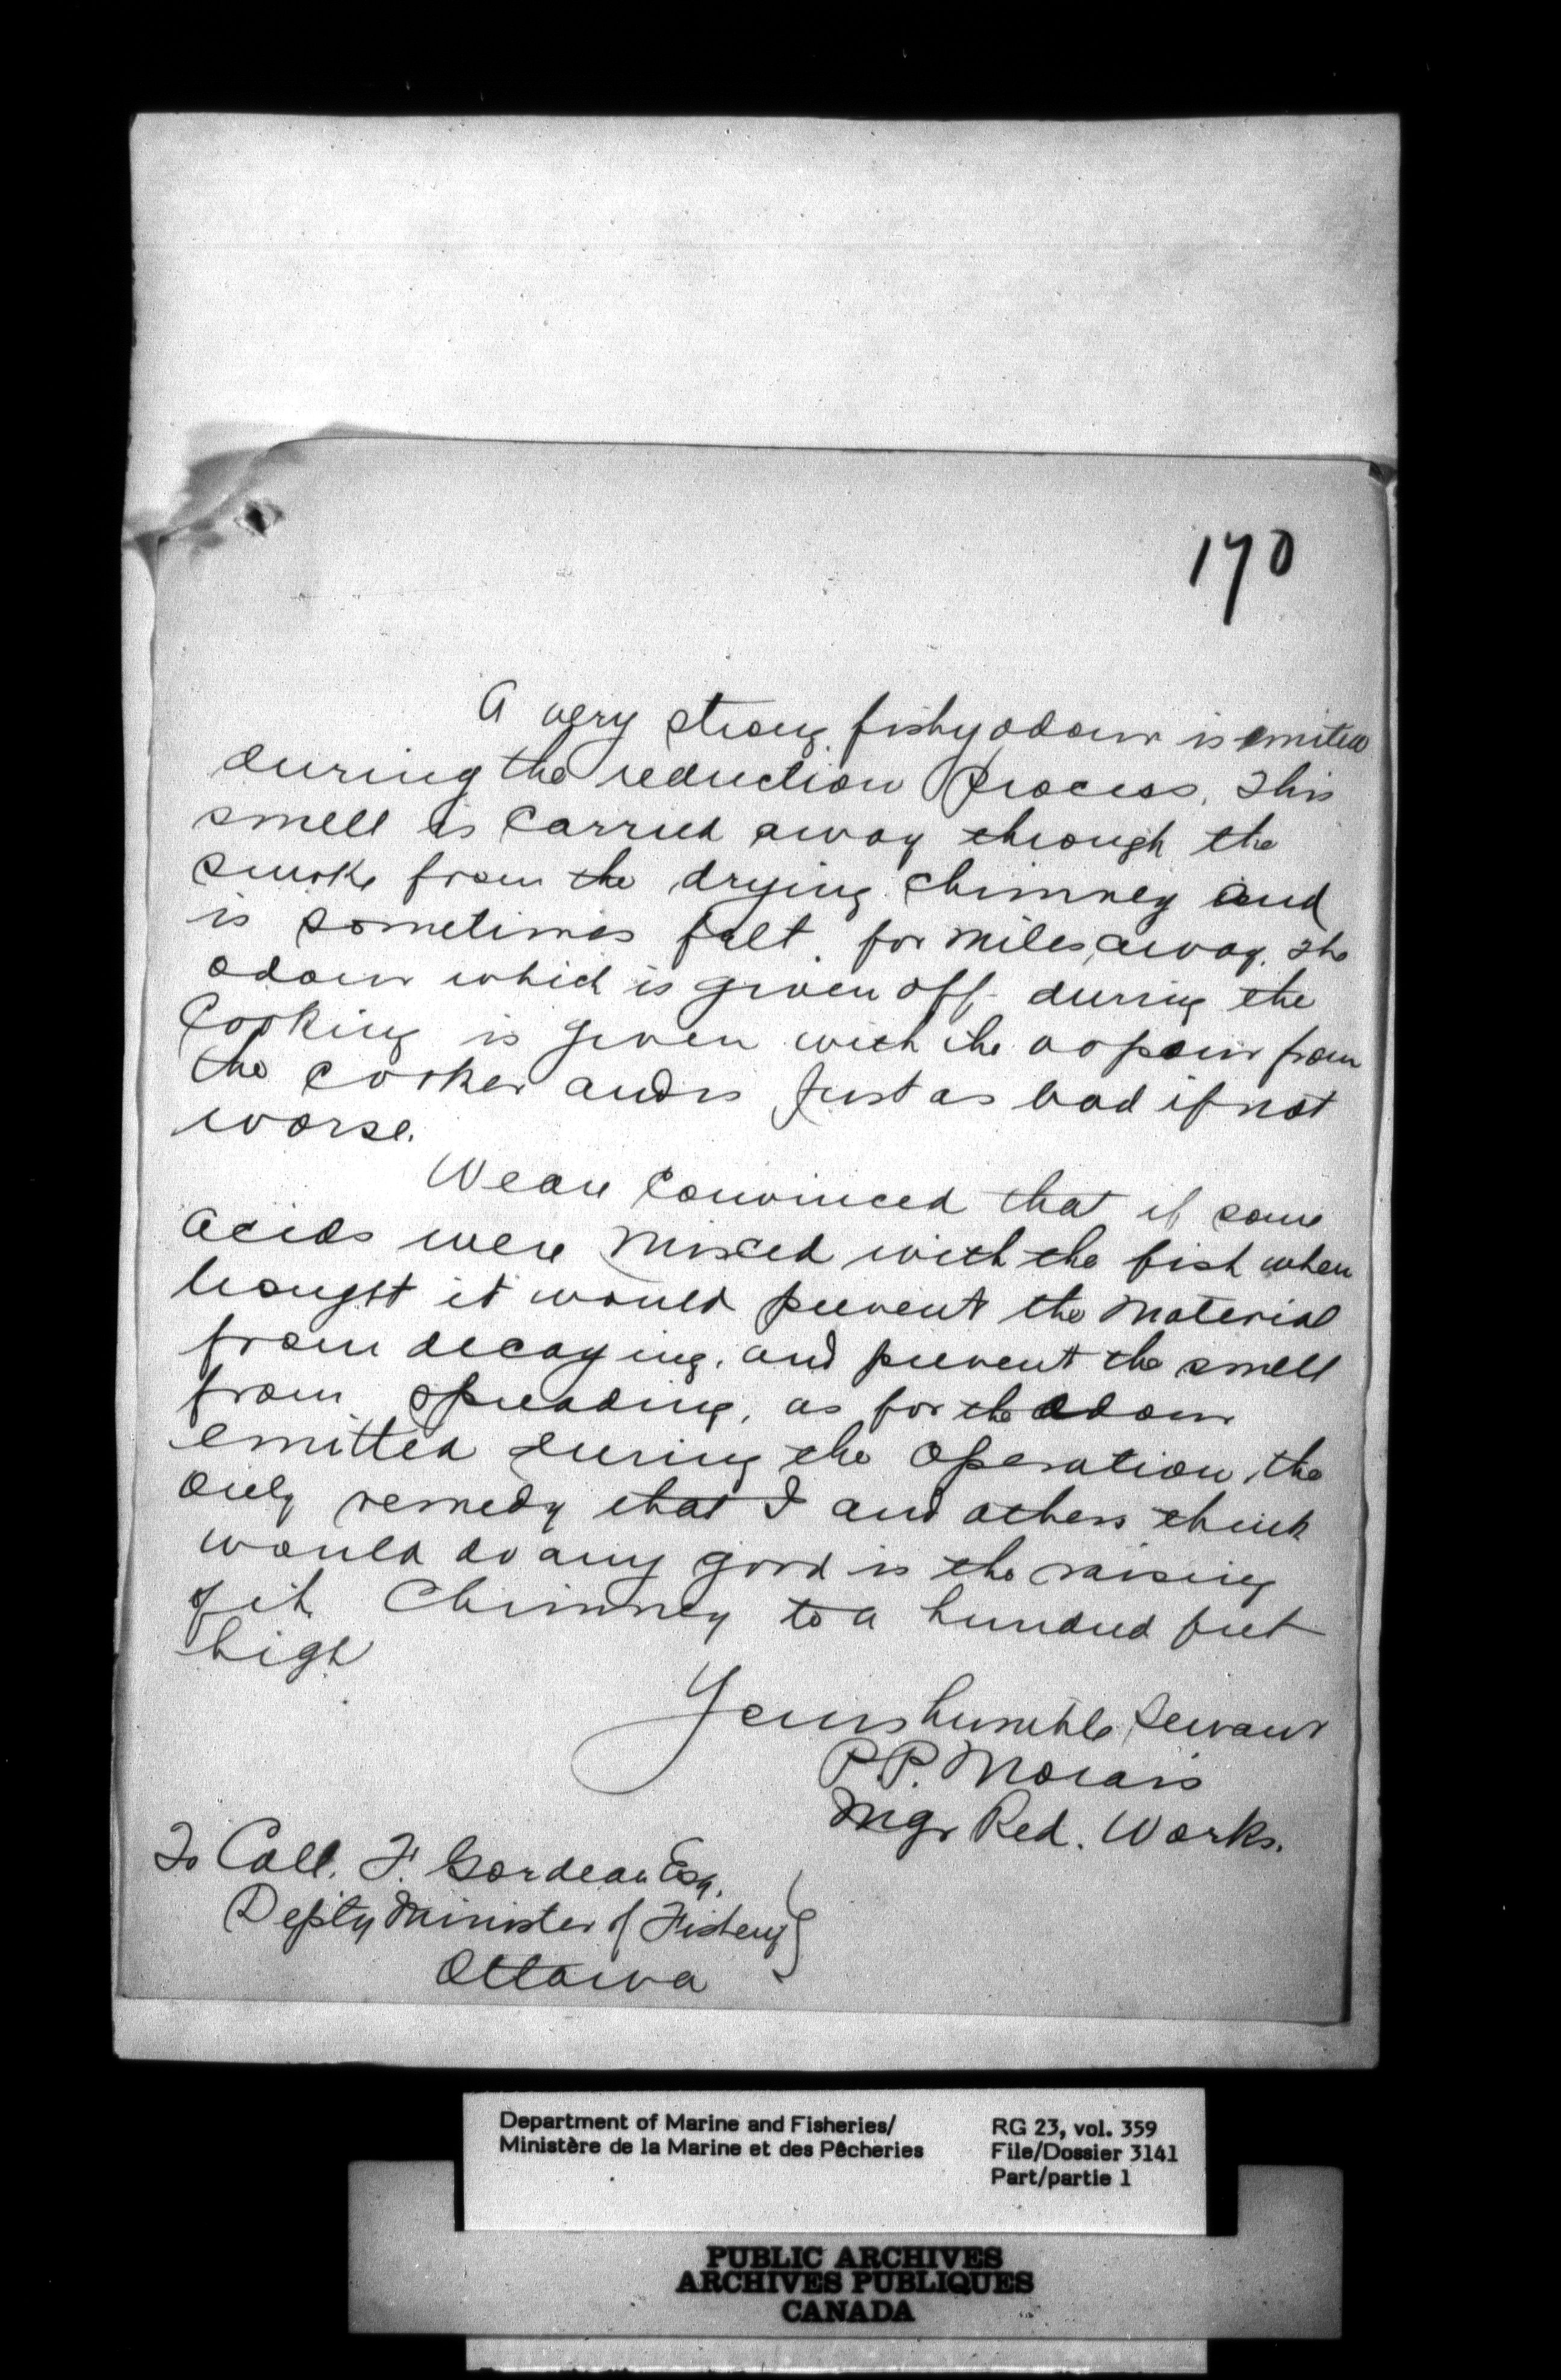 170
A very strong fishy odour is emitted
during the reduction Process, This
smell is Carried away through the
smoke from the drying chimney and
is sometimes felt for miles, away. The
odour which is given off during the
Cooking is given with the vapour from
the cooker and is Just as bad if not
worse.
We are Convinced that if some
acids were mixed with the fish when
bought it would prevent the material
from decaying, and prevent the smell
from spreading, as for the odour
emitted during the operation, the
only remedy that I and others think
would do any good is the raising
of the Chimney to a hundred feet
high
Yours humble Servant
P.P. Morais
Mgr Red. Works.
To Coll. F. Gordeau Esq.
Depty Minister of Fishery
Ottawa
Department of Marine and Fisheries/
Ministère de la Marine et des Pêcheries
RG 23, vol. 359
File/Dossier 3141
Part/partie 1
PUBLIC ARCHIVES
ARCHIVES PUBLIQUES
CANADA